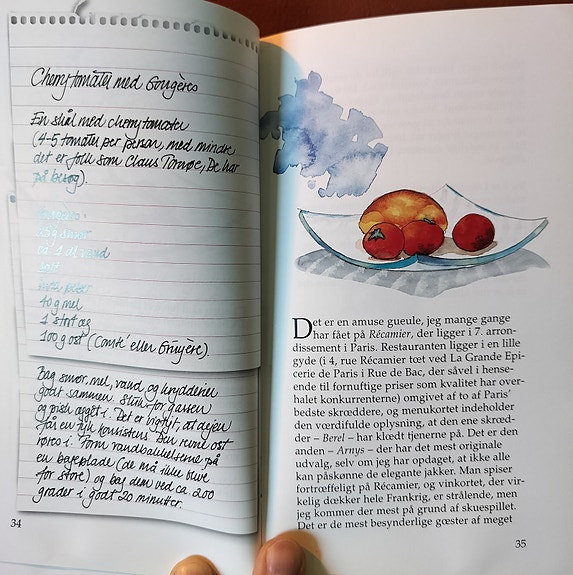 Cherrytomater med Gougères
En skål med cherrytomater
(4-5 tomater per person, med mindre
det er folk som Claus Tornøe, De har
på besøg).
smør
ca 1 dl vand
salt
peber
40 g mel
1 stort æg
100 g ost (Comté eller Gruyère).
Bag smør, mel, vand og krydderier
godt sammen. Sluk for gassen
og pisk ægget i. Det er vigtigt, at dejen
får en tyk konsistens. Den revne ost
røres i. Form vandbakkelserne på
en bageplade (de må ikke blive
for store) og bag dem ved ca 200
grader i godt 20 minutter.
34
Det er en amuse gueule, jeg mange gange
har fået på Récamier, der ligger i 7. arron-
dissement i Paris. Restauranten ligger i en lille
gyde (i 4, rue Récamier tæt ved La Grande Epi-
cerie de Paris i Rue de Bac, der såvel i hense-
ende til fornuftige priser som kvalitet har over-
halet konkurrenterne) omgivet af to af Paris'
bedste skræddere, og menukortet indeholder
den værdifulde oplysning, at den ene skræd-
der – Berel – har klædt tjenerne på. Det er den
anden – Arnys – der har det mest originale
udvalg, selv om jeg har opdaget, at ikke alle
kan påskønne de elegante jakker. Man spiser
fortræffeligt på Récamier, og vinkortet, der vir-
kelig dækker hele Frankrig, er strålende, men
jeg kommer der mest på grund af skuespillet.
Det er de mest besynderlige gæster af meget
35